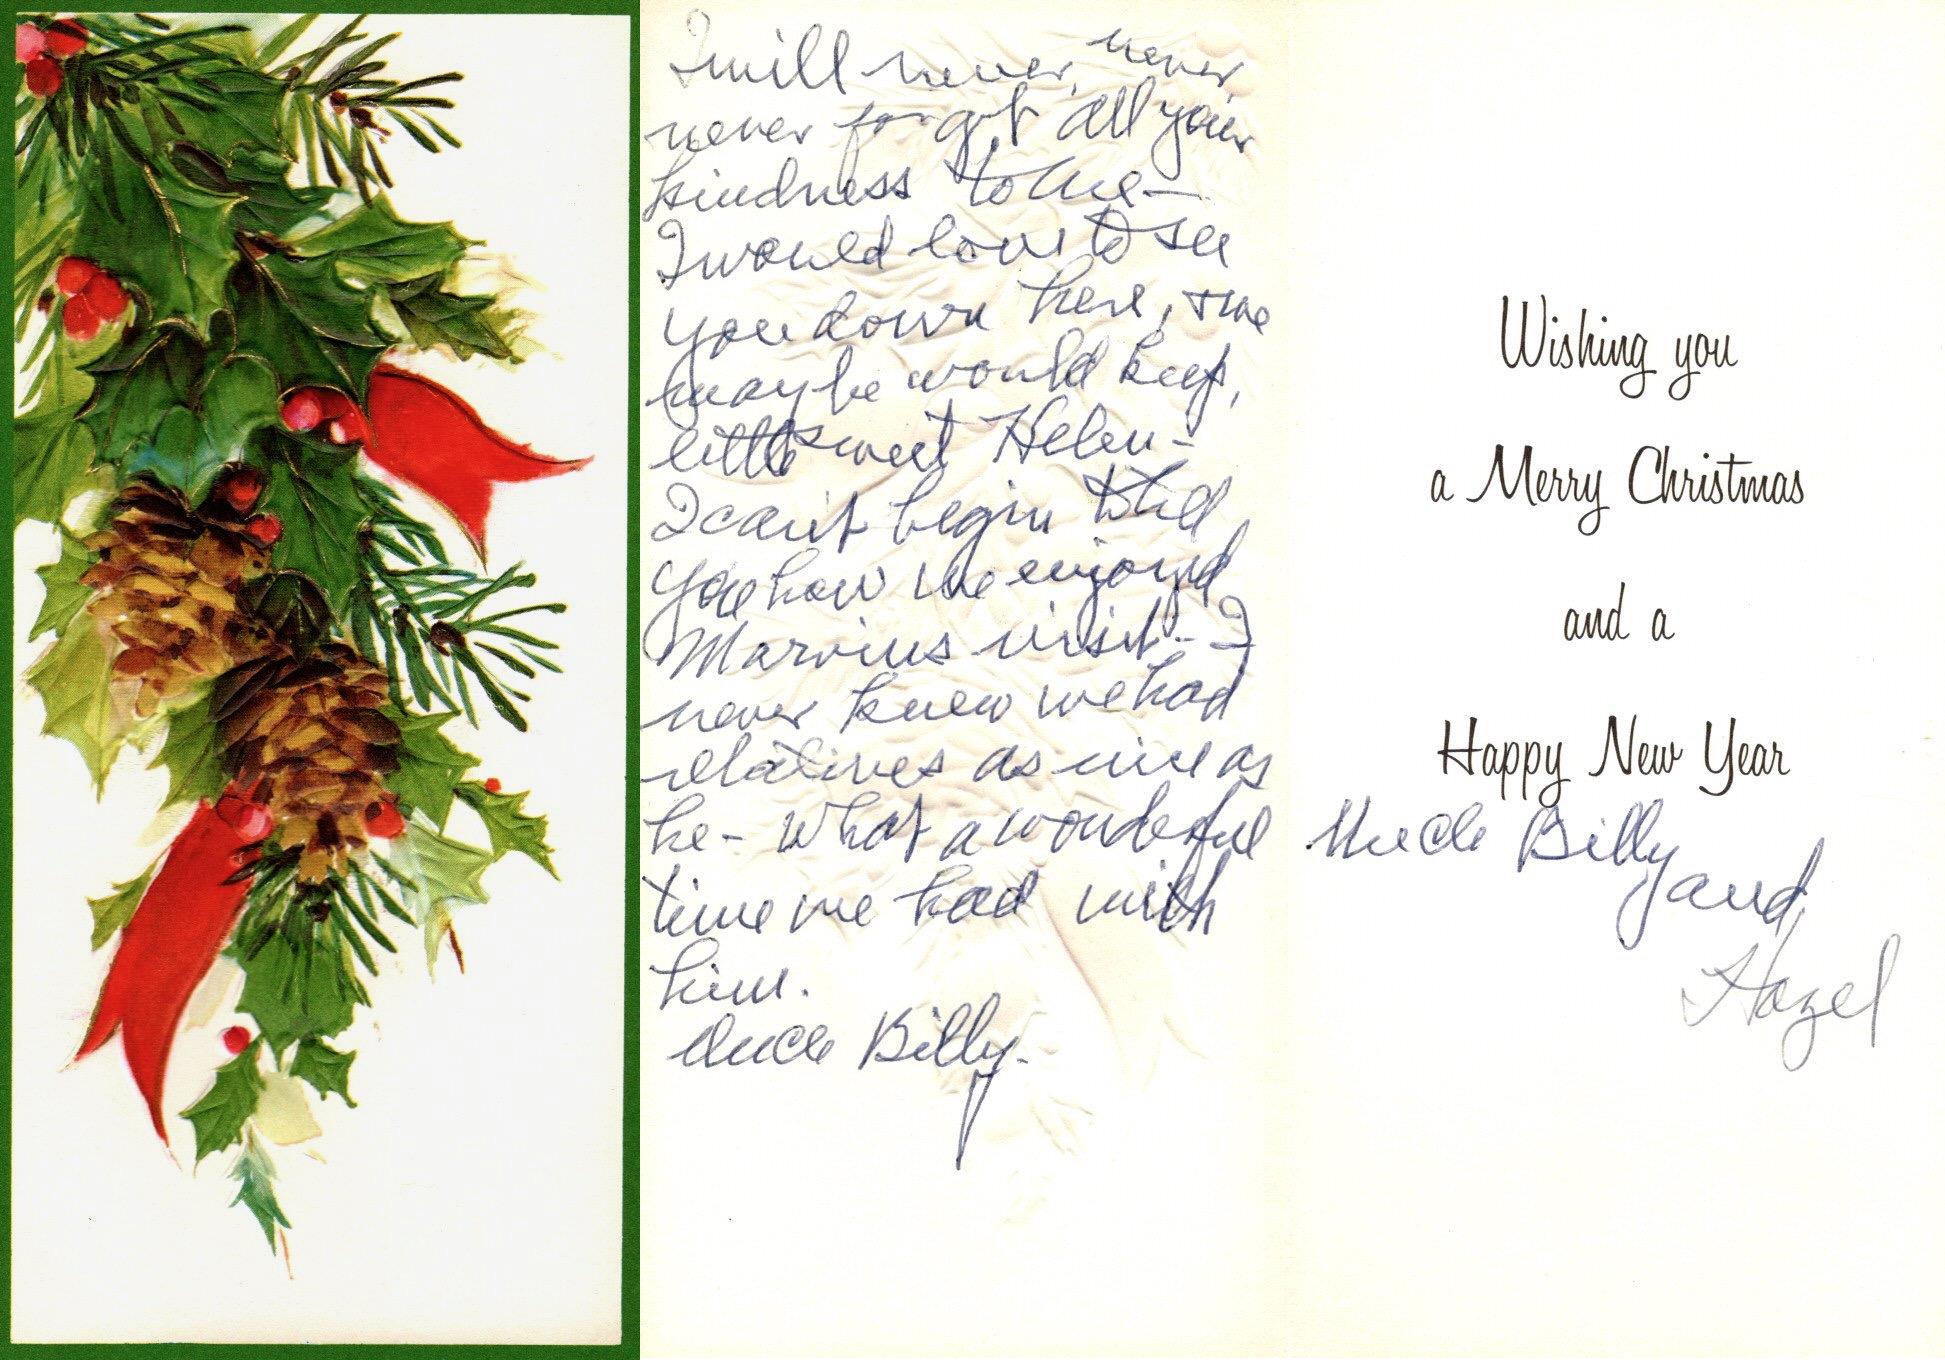 I will never, never,
never forget all your
kindness to me—
I would love to see
you down here, & we
maybe would keep,
little sweet Helen-
I can't begin to tell
you how we enjoyed
Marvins visit - I
never knew we had
relatives as nice as
he - What a wonderful
time we had with
him.
Uncle Billy.
Wishing you
a Merry Christmas
and a
Happy New Year
Uncle Billy and
Hazel